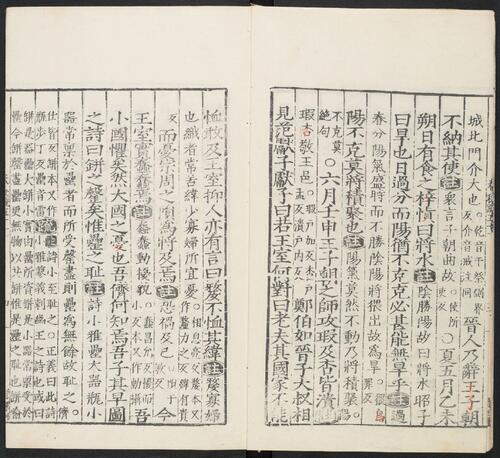 城北門介大也。乾音干祭側界反介音戒注同晉人乃辭王子朝
不納其使註衆言子朝曲故。使所○夏五月乙未
朔日有食之梓愼曰將水註陰勝陽故曰將水昭子
曰旱也日過分而陽猶不克克必甚能無旱乎註過
春分陽氣盛時而不勝陰陽將猥出故爲旱。猥烏罪反
陽不克莫將積聚也註陽氣莫然不動乃將積聚。
不克莫絕句○六月壬申王子朝之師攻瑕及杏皆潰註
瑕杏敬王邑。瑕戶加反杏戶孟反潰戶內反鄭伯如晉子大叔相
見范獻子獻子曰若王室何對曰老夫其國家不能
恤敢及王室抑人亦有言曰嫠不恤其緯註嫠寡婦
也織者常苦緯少寡婦所宜憂。相息亮反嫠本又作釐力之反緯有貴反
而憂宗周之隕爲將及焉註恐禍及己。隕于敏反今
王室實蠢蠢焉註蠢蠢動擾貌。蠢昌允反擾而小反吾
小國懼矣然大國之憂也吾儕何知焉吾子其早圖
之詩曰缾之罄矣惟罍之恥註詩小雅罍大器缾小
器常稟於罍者而所受罄盡則罍爲無餘故恥之。儕
仕皆反缾本又作瓶步丁反罍音雷詩小至恥之。正義曰此詩